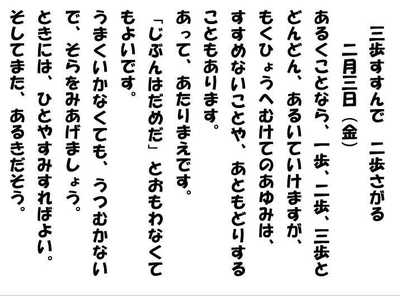 三歩すすんで　二歩さがる
二月三日（金）
あるくことなら、一歩、二歩、三歩と
どんどん、あるいていけますが、
もくひょうへむけてのあゆみは、
すすめないことや、あともどりする
こともあります。
あって、あたりまえです。
「じぶんはだめだ」とおもわなくて
もよいです。
うまくいかなくても、うつむかない
で、そらをみあげましょう。
ときには、ひとやすみすればよい。
そしてまた、あるきだそう。